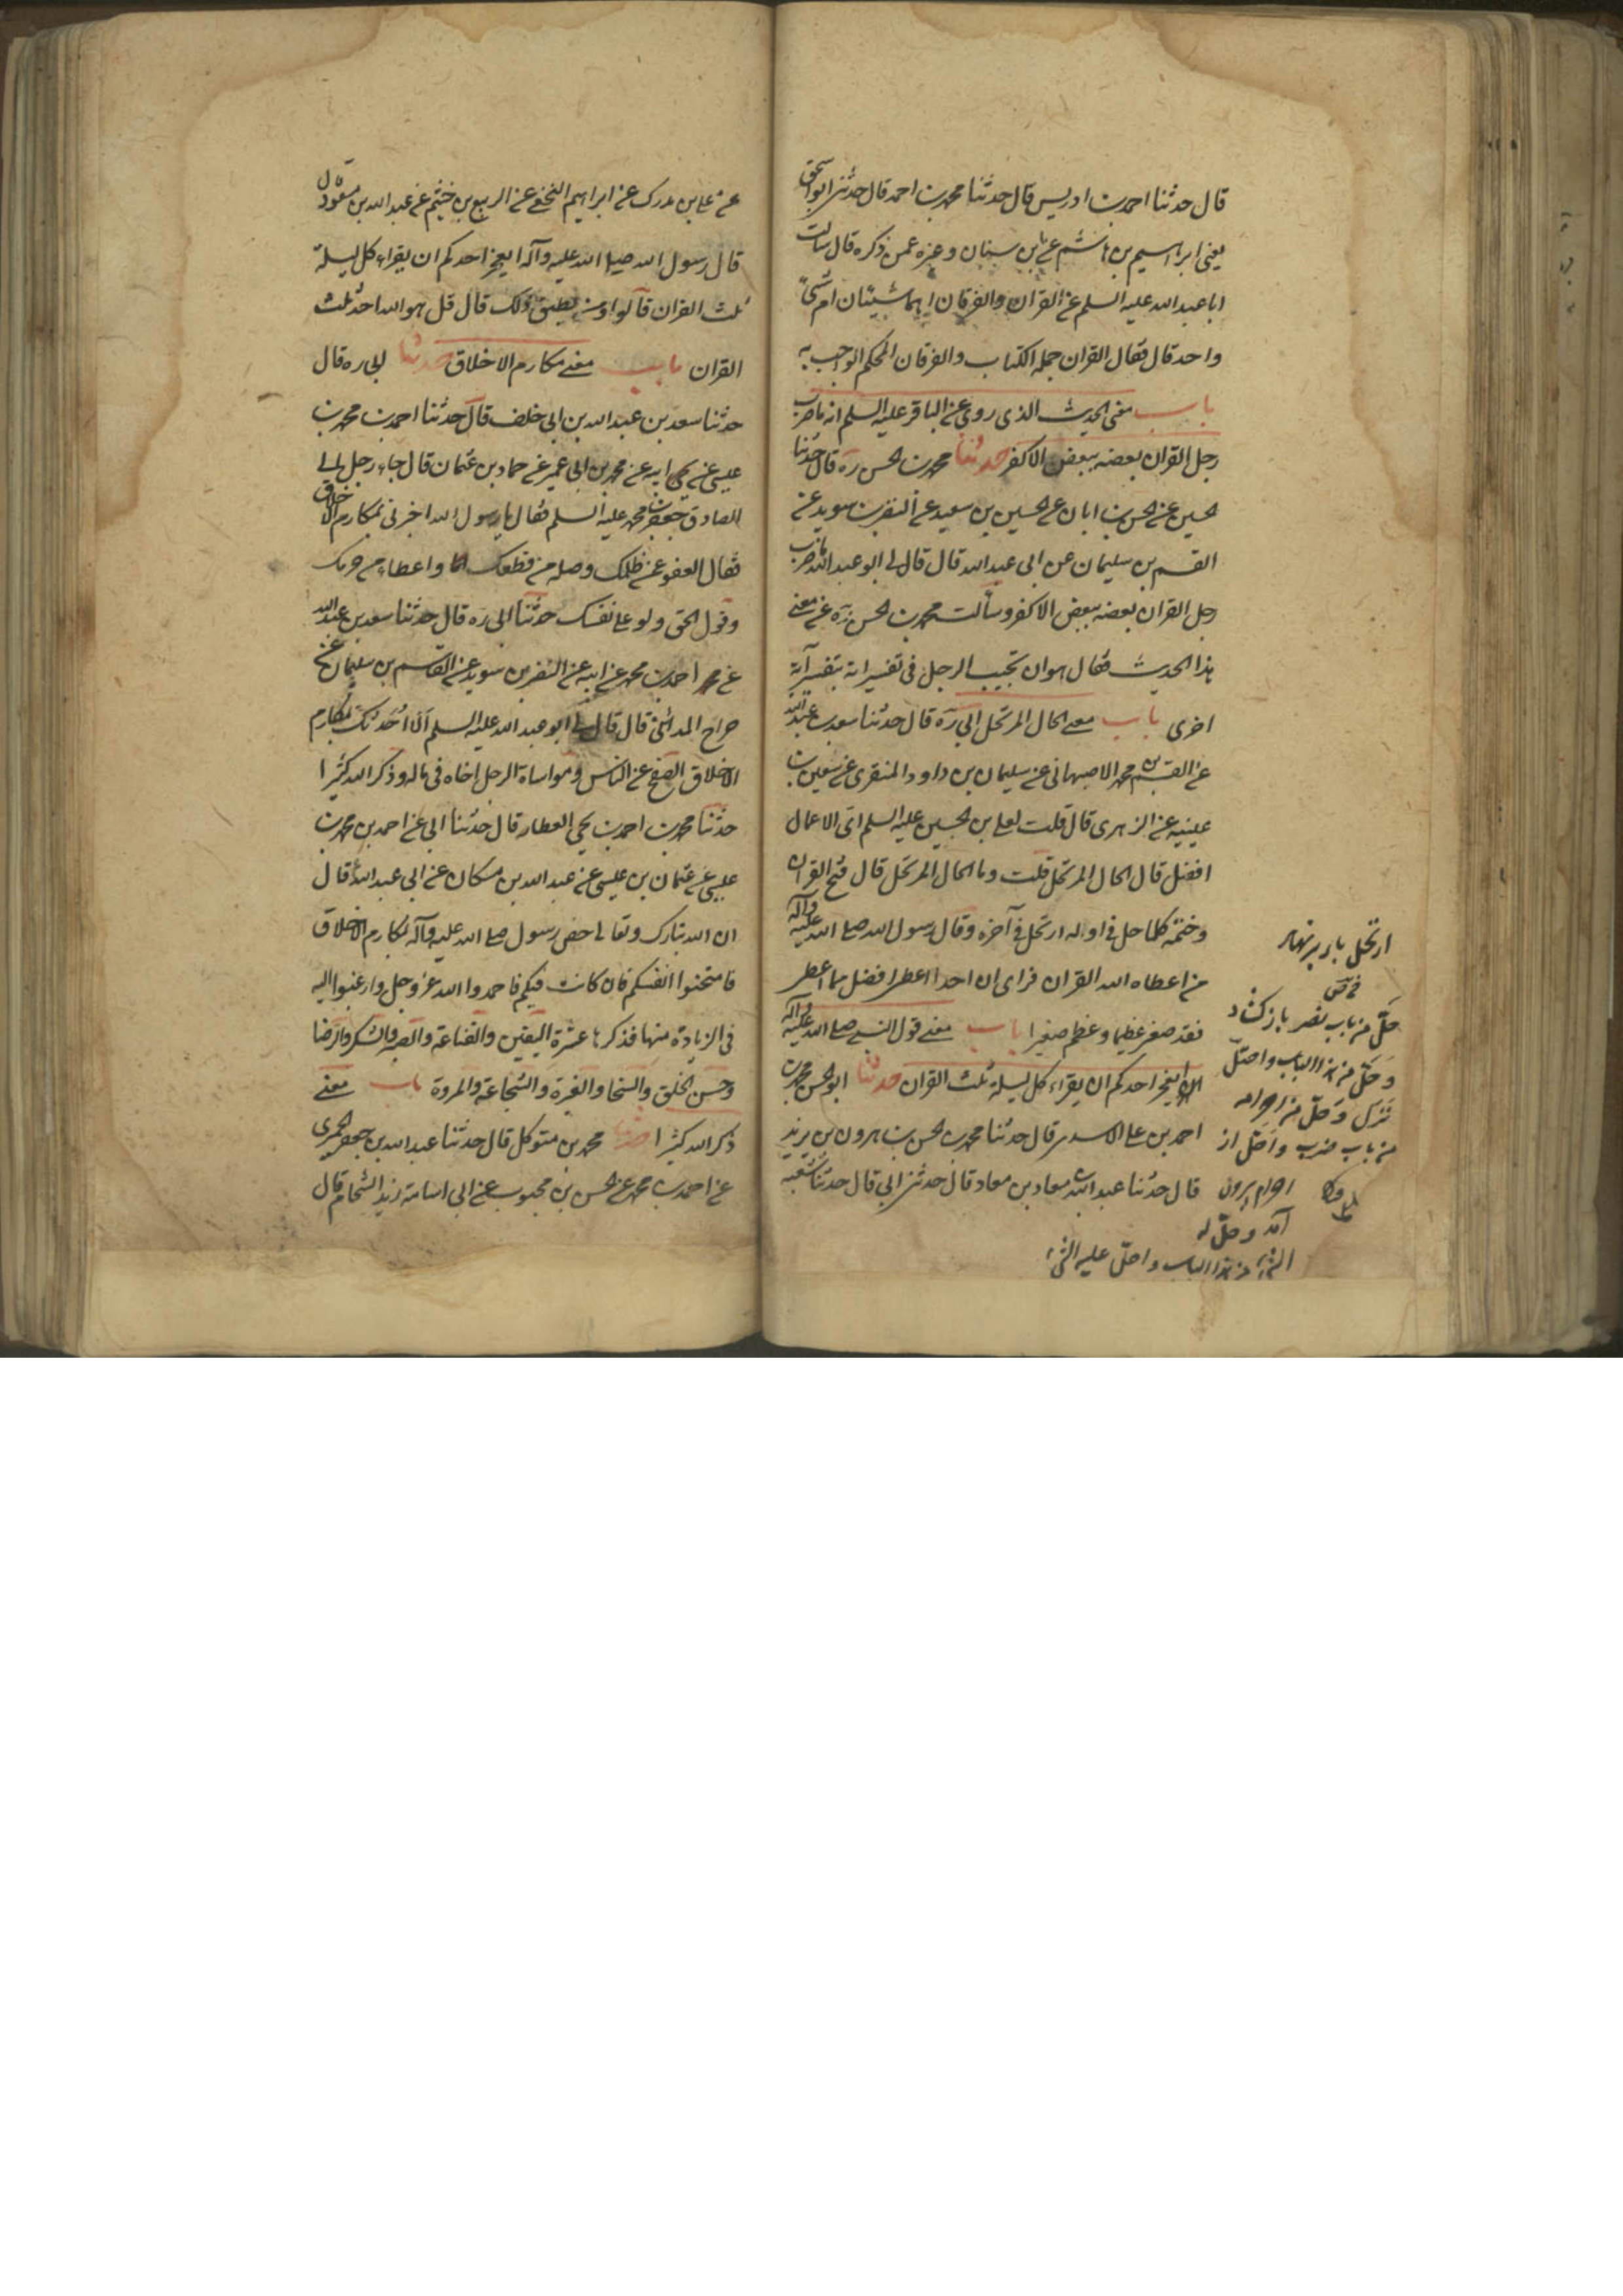 قال حدثنا احمد بن ادريس قال حدثنا محمد بن احمد قال حدثنى ابو اسحق
يعنى ابراهيم بن هاشم عن ابن سنان وغيره عمن ذكره قال سالت
ابا عبد الله عليه السلم عن القران والفرقان اهما شيئان ام شئ
واحد قال فقال القران جملة الكتاب والفرقان المحكم الواجب به
باب معنى الحديث الذى روى عن الباقر عليه السلم انه ما ضرب
رجل القران بعضه ببعض الا كفر حدثنا محمد بن الحسن ره قال حدثنا
لحسين عن الحسن بن ابان عن الحسين بن سعيد عن النضر بن سويد عن
القسم بن سليمان عن ابى عبد الله قال قال لى ابو عبد الله ما ضرب
رجل القران بعضه ببعض الا كفر وسألت محمد بن الحسن ره عن معنى
هذا الحديث فقال هو ان تجيب الرجل فى تفسير اية بتفسير آية
اخرى باب معنى الحال المرتحل ابى ره قال حدثنا سعد بن عبد الله
عن القسم بن محمد الاصبهانى عن سليمان بن داود المنقرى عن سفين بن
عيينيه عن الزهرى قال قلت لعلى بن الحسين عليه السلم اى الاعمال
افضل قال الحال المرتحل قلت وما الحال المرتحل قال فتح القران
وختمه كلما حل فى اوله ارتحل فى آخره وقال رسول الله صلى الله عليه وآله
من اعطاه الله القران فراى ان احدا اعطى افضل مما اعطى
فقد صغر عظيما وعظم صغيرا باب معنى قول النبى صلى الله عليه وآله
ايعجز احدكم ان يقراء كل ليلة ثلث القران حدثنا ابو الحسن محمد بن
احمد بن على الاسدى قال حدثنا محمد بن الحسن بن هرون بن يزيد
قال حدثنا عبد الله بن معاد بن معاد قال حدثنى ابى قال حدثنا شعبه
ارتحل بار بر نهاد
حلّ من باب نصر باز كشاد
وحلّ من هذا الباب واحتلّ
نزل وحلّ من احرامه
من باب ضرب واحلّ از
احرام بيرون
آمد وحلّ له
الشئ من هذا الباب واحلّ عليه الشئ
عن على بن مدرك عن ابراهيم النخعى عن الربيع بن خثيم عن عبد الله بن مسعود قال
قال رسول الله صلى الله عليه وآله ايعجز احدكم ان يقراء كل ليلة
ثلث القران قالوا ومن يطيق ذلك قال قل هو الله احد ثلث
القران باب معنى مكارم الاخلاق حدثنا ابى ره قال
حدثنا سعد بن عبد الله بن ابى خلف قال حدثنا احمد بن محمد بن
عيسى عن ابيه عن محمد بن ابى عمير عن حماد بن عثمان قال جاء رجل الى
الصادق جعفر بن محمد عليه السلم فقال يابن رسول الله اخبرنى بمكارم الاخلاق
فقال العفو عمن ظلمك وصلة من قطعك واعطاء من حرمك
وقول الحق ولو على نفسك حدثنا ابى ره قال حدثنا سعد بن عبد الله
عن احمد بن محمد عن ابيه عن النضر بن سويد عن القاسم بن سليمان عن
جراح المدائنى قال قال لى ابو عبد الله عليه السلم الا احدثك بمكارم
الاخلاق الصفح عن الناس ومواساة الرجل اخاه فى ماله وذكر الله كثيرا
حدثنا محمد بن احمد بن يحيى العطار قال حدثنا ابى عن احمد بن محمد بن
عيسى عن عثمان بن عيسى عن عبد الله بن مسكان عن ابى عبد الله قال
ان الله تبارك وتعالى خص رسول صلى الله عليه وآله بمكارم الاخلاق
فامتحنوا انفسكم فان كانت فيكم فاحمدوا الله عز وجل وارغبوا اليه
فى الزيادة منها فذكرها عشرة اليقين والقناعة والصبر والشكر والرضا
وحسن الخلق والسخا والغيرة والشجاعة والمروة باب معنى
ذكر الله كثيرا حدثنا محمد بن متوكل قال حدثنا عبد الله بن جعفر الحميرى
عن احمد بن محمد عن الحسن بن محبوب عن ابى اسامة زيد الشحام قال